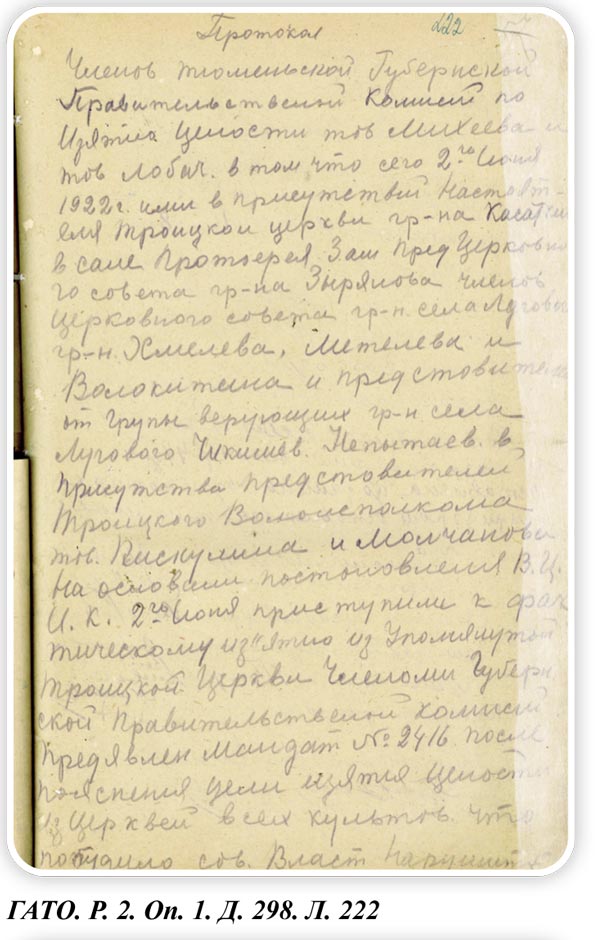 Протокол 222
Членов тюменьской Губернской
Правительственой Комисий по
Изятиа Цености тов Михеева и
тов Лобач. в том что сего 2го Июня
1922г. ими в присутствий Настоят-
еля троицкой церкви гр-на
в сане Протоерея Зам Пред Церковно
го совета гр-на Зырялова членов
Церковного совета гр-н. села Лугово
гр-н. Хмелева, Метелева и
Волокитина и предстовител
от групы верующих гр-н села
Лугового Чикишев. Непытаев. в
присутства предстовителей
Троицкого Волоисполкома
тов. Пискулина и Молчанова
на основаии постоновления В.Ц.
И.К. 2го Июня приступили к фак
тическому из"ятию из Упомянутой
троицкой Церкви Членоми Губерн
ской правительственой комисий
предявлен мандат № 2416 после
пояснения цели изятия Цености
из Церквей всех культов. что
побудило сов. Власт
ГАТО. Р. 2. Оп. 1. Д. 298. Л. 222